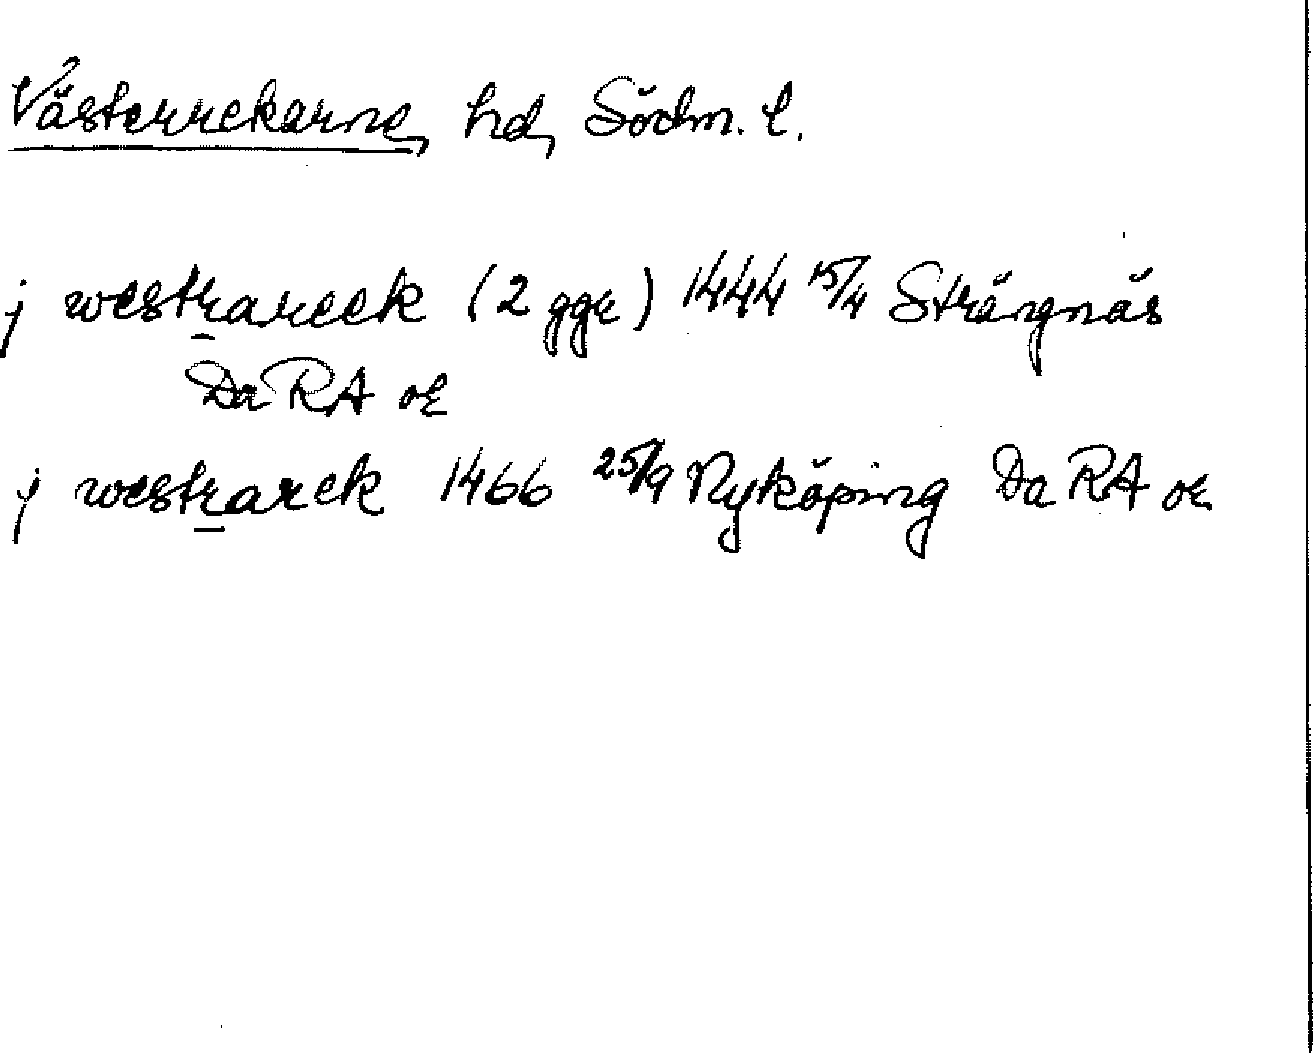 Västerrekarne, hd, Södm. l.
j westrareek (2 ggr) 1444 15/4 Strängnäs
Da RA or
j westrarek 1466 25/9 Nyköping Da RA or